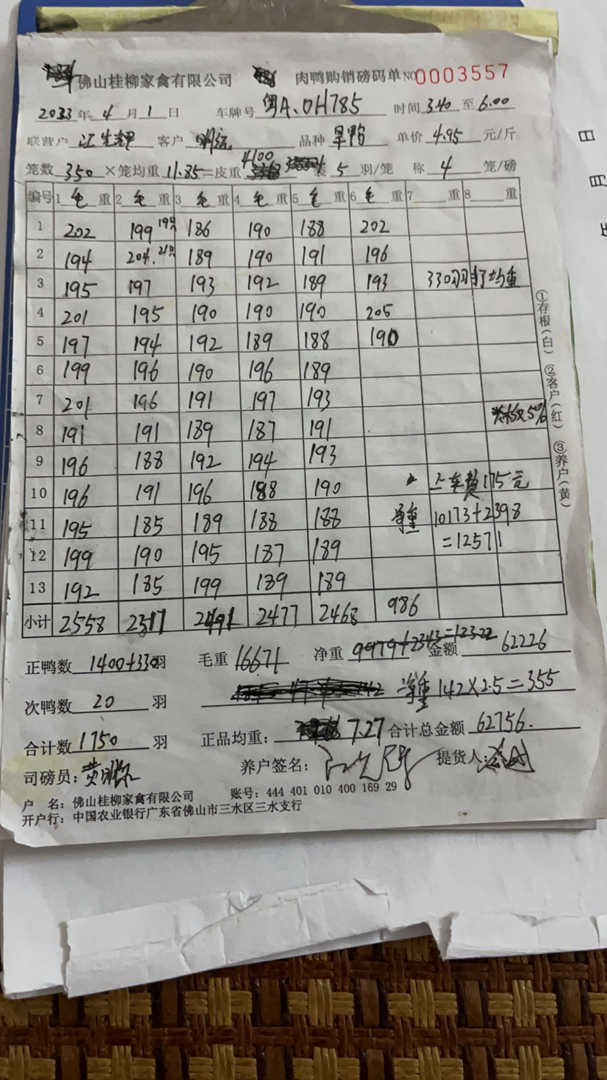 佛山桂柳家禽有限公司 肉鸭购销磅码单 NO 0003557
2023年4月1日 车牌号 粤A.0H785 时间 3.40 至 6.00
联营户 客户 品种 单价 4.95 元/斤
笼数 350 ×笼均重 11.85=皮重 4100 装 5 羽/笼 称 4 笼/磅
编号 1 毛 重 2 毛 重 3 毛 重 4 毛 重 5 毛 重 6 毛 重 7 重 8 重
1 202 199 19只 186 190 188 202
2 194 204. 21只 189 190 191 196
3 195 197 193 192 189 193 330羽打均重
4 201 195 190 190 190 205
5 197 194 192 189 188 190
6 199 196 190 196 189
7 201 196 191 197 193
8 191 191 189 187 191 5%
9 196 188 192 194 193
10 196 191 196 188 190 上车费175元
11 195 185 189 188 188 净重 10173+2398
12 199 190 195 187 189 =12571
13 192 185 199 189 189
小计 2558 2317 2491 2477 2468 986
正鸭数 1400+330羽 毛重 16671 净重 9979+2343=12322 金额 62226
次鸭数 20 羽 净重 142×2.5=355
合计数 1750 羽 正品均重: 7.27 合计总金额 62756.
司磅员: 养户签名: 提货人:
户 名: 佛山桂柳家禽有限公司 账号: 444 401 010 400 169 29
开户行: 中国农业银行广东省佛山市三水区三水支行
①存根(白) ②客户(红) ③养户(黄)
日
月